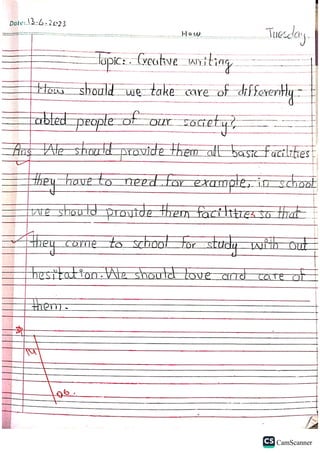 Date: 13-6-2023
How
Tuesday.
Topic:. Creative writing
How should we take care of differently-
abled people of our society?
Ans We should provide them all basic facilities
they have to need for example, in school
we should provide them facilities so that
they come to school for study with out
hesitation. We should love and care of
them.
06.
CS CamScanner